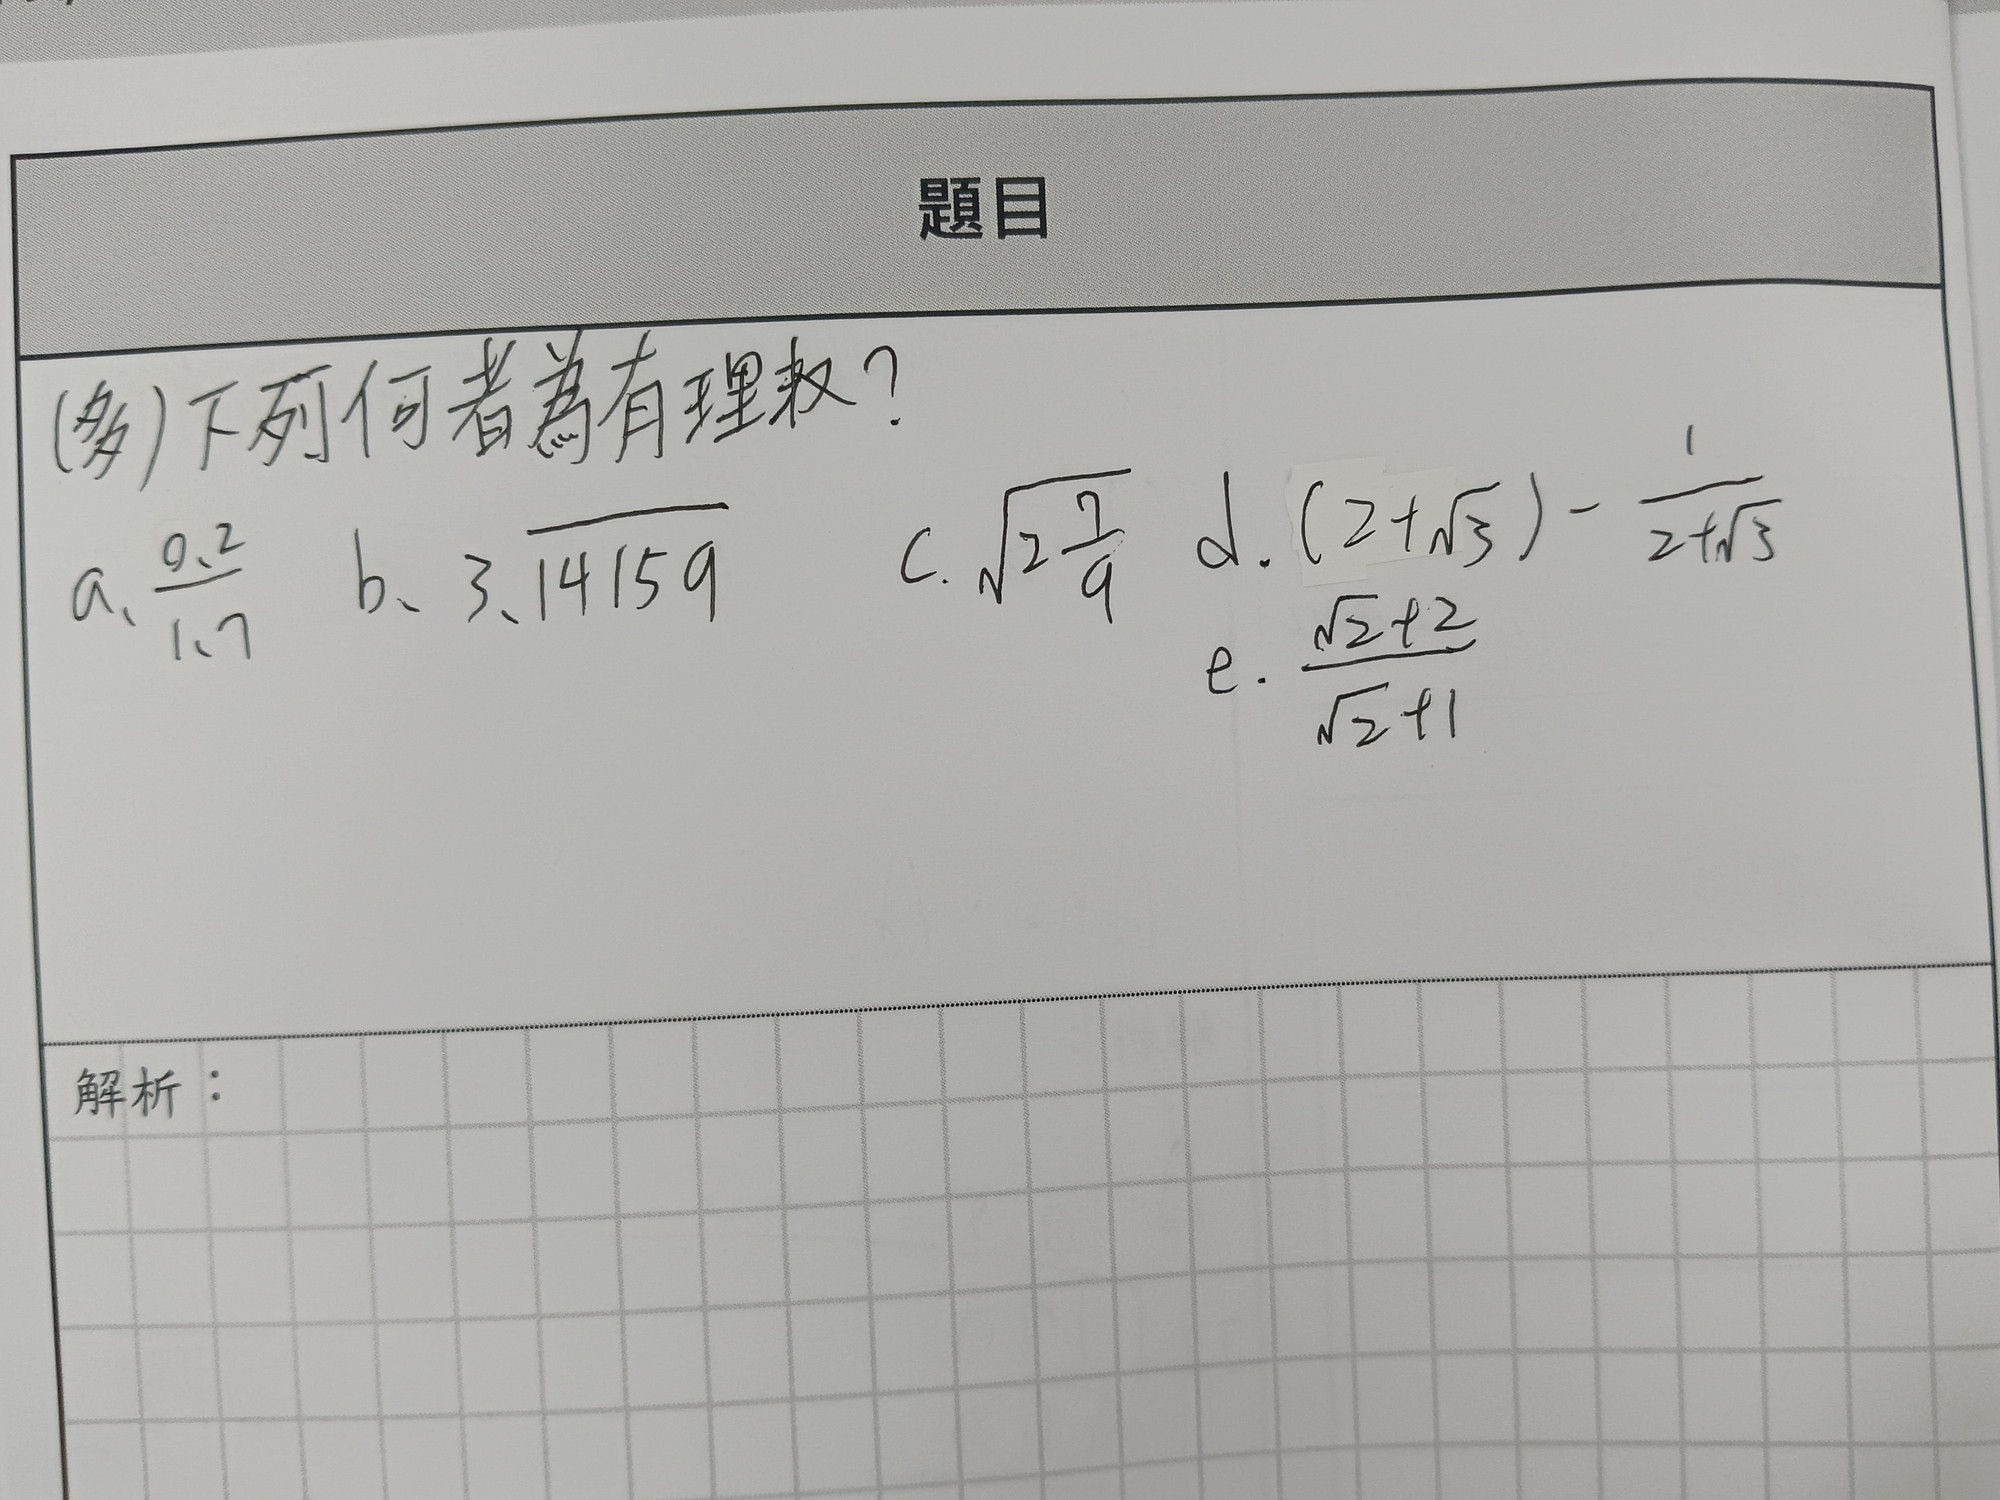 題目
(多)下列何者為有理数?
a、0、2/1、7 b、3、\overline{14159} c. √(2 7/9) d. (2+√3) - 1/(2+√3)
e. (√2+2)/(√2+1)
解析：